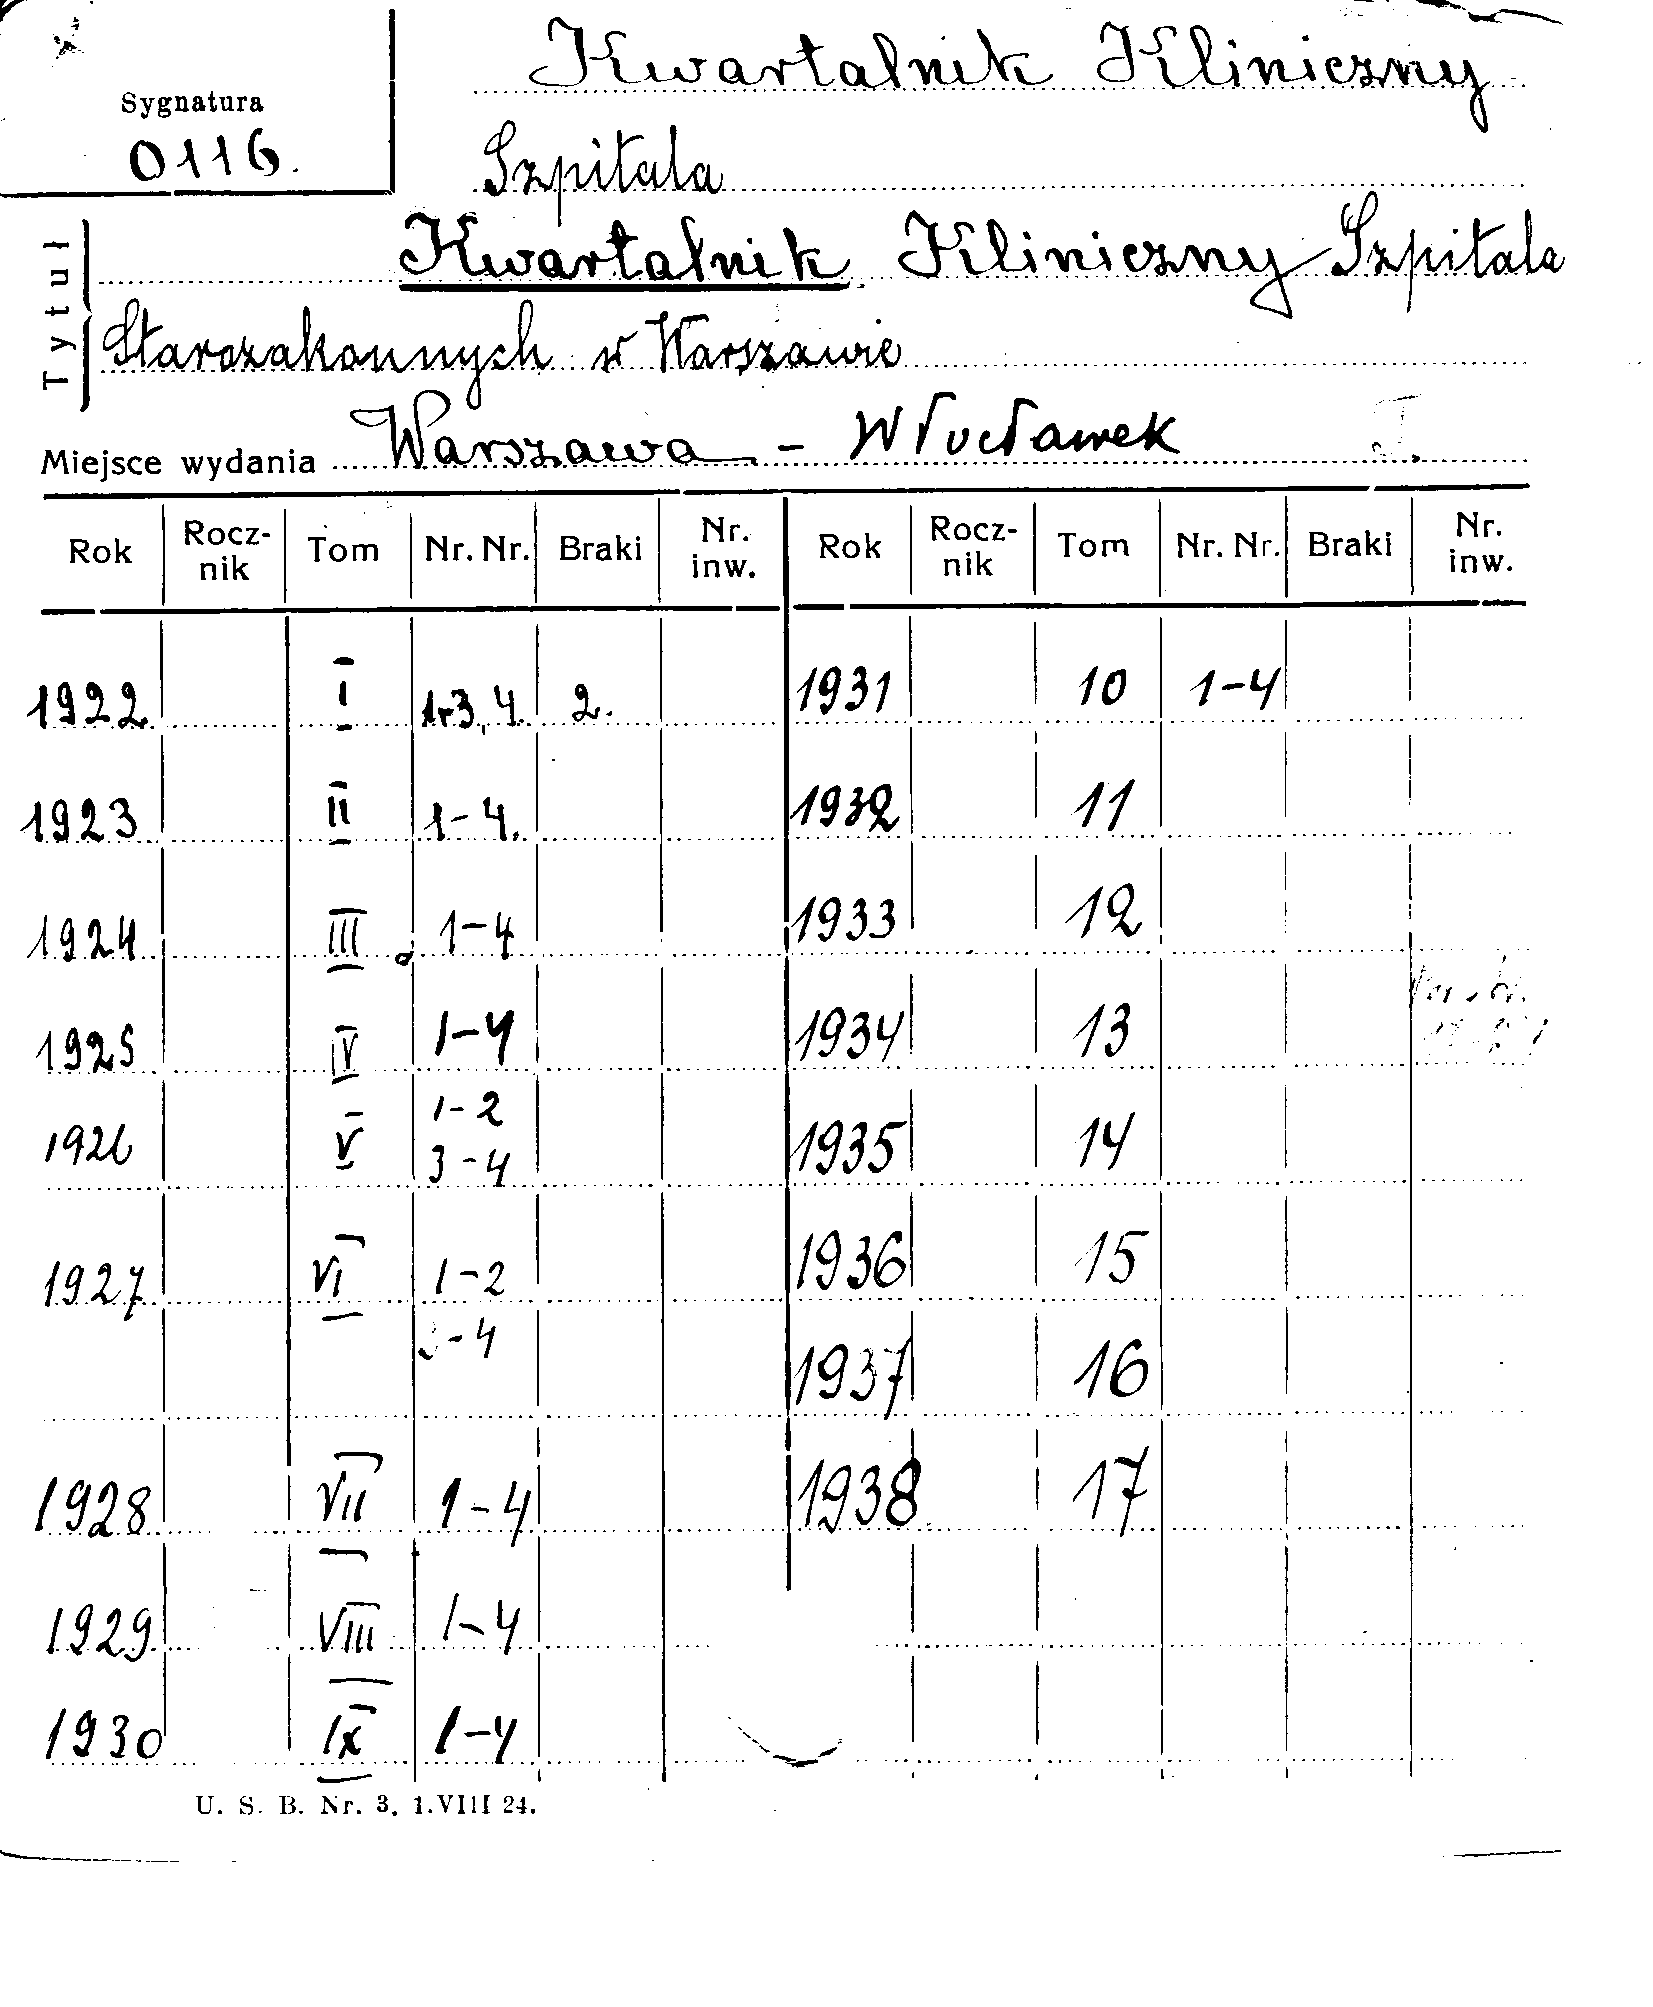 Kwartalnik Kliniczny
Sygnatura
0116.
Szpitala
Tytuł
Kwartalnik Kliniczny Szpitala
Starozakonnych w Warszawie
Miejsce wydania Warszawa - Włocławek
Rok Rocz-nik Tom Nr. Nr. Braki Nr. inw. Rok Rocz-nik Tom Nr. Nr. Braki Nr. inw.
1922. I 1-3, 4. 2. 1931 10 1-4
1923 II 1-4. 1932 11
1924 III 1-4 1933 12
1925 IV 1-4 1934 13
1926 V 1-2 3-4 1935 14
1927 VI 1-2 1936 15
3-4 1937 16
1928 VII 1-4 1938 17
1929 VIII 1-4
1930 IX 1-4
U. S. B. Nr. 3. 1.VIII 24.